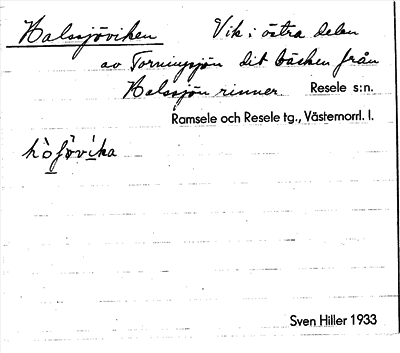 Halssjöviken Vik i östra delen
av Torningsjön dit bäcken från
Halssjön rinner. Resele s:n.
Ramsele och Resele tg., Västernorrl. l.
Sven Hiller 1933